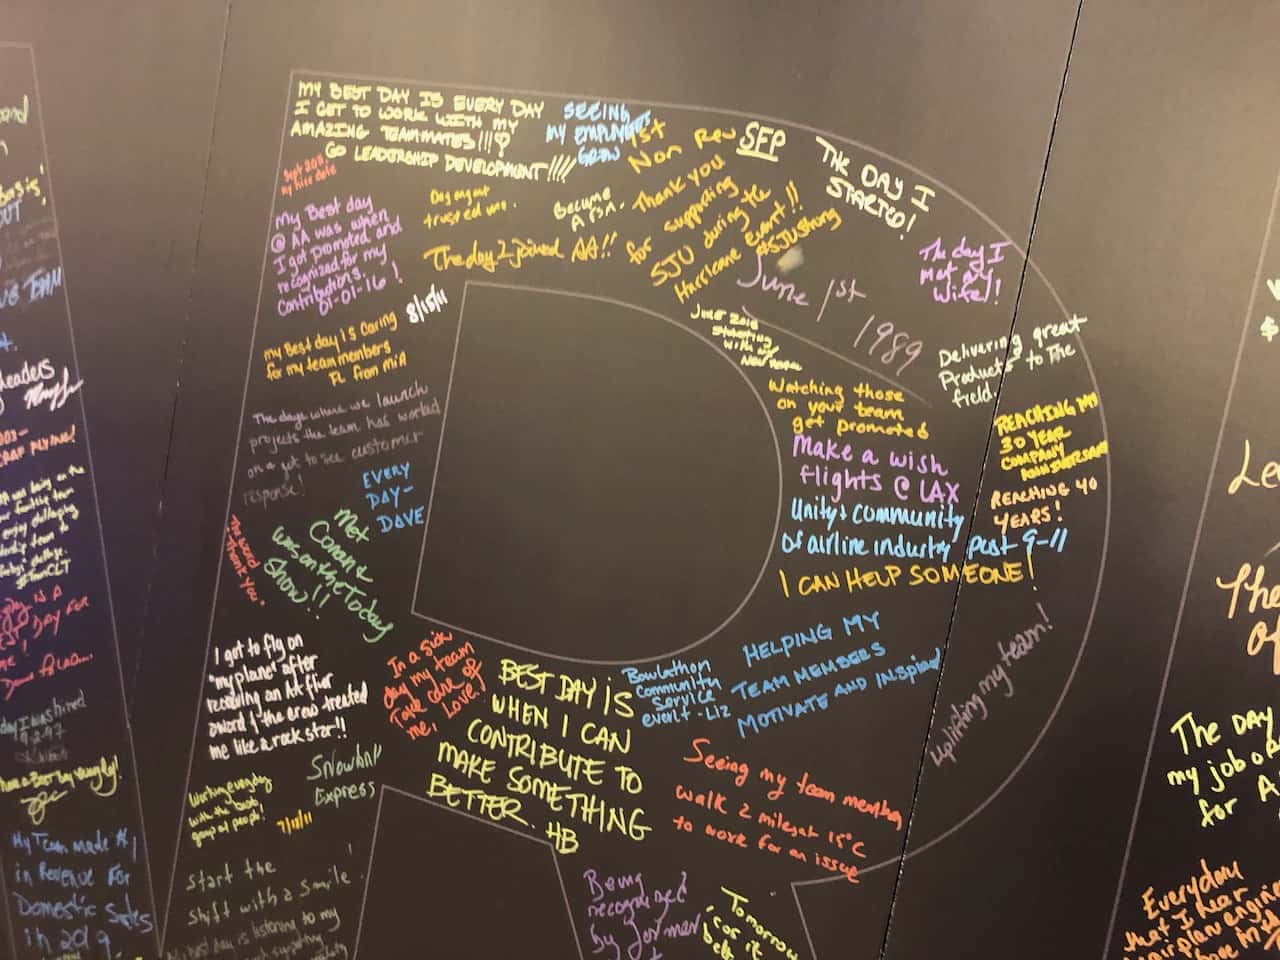 MY BEST DAY IS EVERY DAY
I GET TO WORK WITH MY
AMAZING TEAMMATES!!!
GO LEADERSHIP DEVELOPMENT!!!!
SEEING
MY EMPLOYEES
GROW
1st
Non Rev
SFP
THE DAY I
STARTED!
Sept 2011
my hire date
My Best day
@ AA was when
I got promoted and
recognized for my
Contributions.
01-01-16!
Day agent
trusted me.
Became
A FSA.
The day I joined AA!!
Thank you
for supporting
SJU during the
Hurricane event!!
#SJUStrong
The day I
Met my
Wife!
June 1st 1989
my Best day is Caring
for my team members
FL from MIA
8/15/11
June 2016
Starting
with my
New Team
Delivering great
Products to The
field.
Watching those
on your team
get promoted
REACHING MY
30 YEAR
COMPANY
ANNIVERSARY
The days where we launch
projects the team has worked
on & get to see customer
response!
EVERY
DAY-
DAVE
Make a wish
flights @ LAX
REACHING 40
YEARS!
Unity & community
of airline industry post 9-11
I CAN HELP SOMEONE!
The word
Thank you.
Met
Conan &
was on the Today
Show!!
I got to fly on
"my plane" after
receiving an AA flyer
award & the crew treated
me like a rock star!!
In a sick
day my team
Take care of
me, Love!
BEST DAY IS
WHEN I CAN
CONTRIBUTE TO
MAKE SOMETHING
BETTER. HB
Bowlathon
Community
Service
event - Liz
HELPING MY
TEAM MEMBERS
MOTIVATE AND INSPIRED
Uplifting my team!
Snowball
Express
Working everyday
with the best
group of people!
7/13/11
Seeing my team members
walk 2 miles at 15°C
to work for an issue
Start the
shift with a smile!
My best day is listening to my
Being
recognized
by former
Tomorrow
cos it
Leaders
#TeamCLT
day I was hired
My Team made #1
in Revenue For
Domestic Sales
in 2019.
The DAY
my job o
for A
Everyday
that I hear
airplane engine